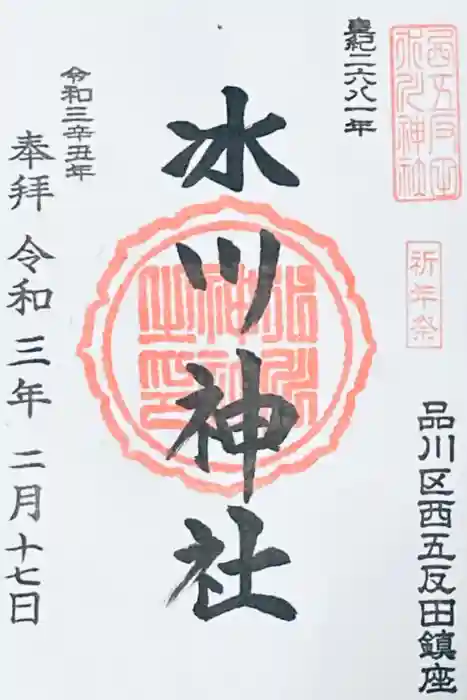 西五反田
氷川神社
祈年祭
品川区西五反田鎮座
皇紀二六八一年
氷川神社
氷川
神社
之印
令和三辛丑年
奉拝 令和三年 二月十七日